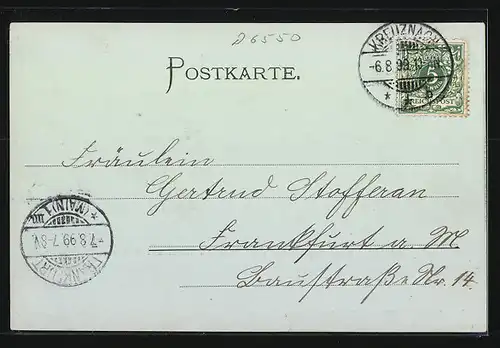 26550
KREUZNACH
-6.8.99.
5
REICHSPOST
POSTKARTE.
Fräulein
Gertrud Stofferan
Frankfurt a. M
Baustraße Nr. 14.
FRANKFURT
-7.8.99.7-8V.
* (MAIN) 1